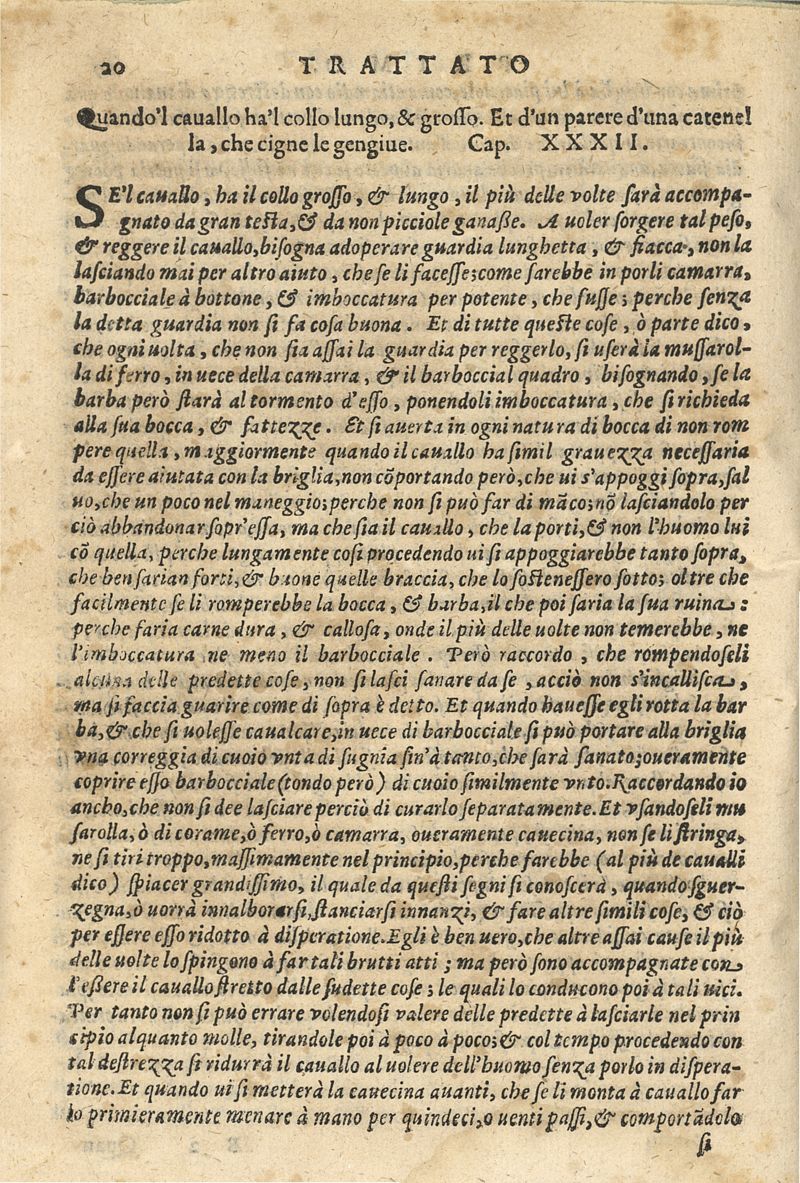 20 TRATTATO
Quando'l cauallo ha'l collo lungo, & grosso. Et d'un parere d'una catenel
la, che cigne le gengiue. Cap. XXXII.
SE'l cauallo, ha il collo grosso, & lungo, il più delle volte sarà accompa-
gnato da gran testa, & da non picciole ganaße. A uoler sorgere tal peso,
& reggere il cauallo, bisogna adoperare guardia lunghetta, & fiacca, non la
lasciando mai per altro aiuto, che se li facesse; come sarebbe in porli camarra,
barbocciale à bottone, & imboccatura per potente, che fusse; perche senza
la detta guardia non si fa cosa buona. Et di tutte queste cose, ò parte dico,
che ogni uolta, che non sia assai la guardia per reggerlo, si userà la mussarol-
la di ferro, in uece della camarra, & il barboccial quadro, bisognando, se la
barba però starà al tormento d'esso, ponendoli imboccatura, che si richieda
alla sua bocca, & fattezze. Et si auerta in ogni natura di bocca di non rom
pere quella, maggiormente quando il cauallo ha simil grauezza necessaria
da essere aiutata con la briglia, non cõportando però, che ui s'appoggi sopra, sal
uo, che un poco nel maneggio; perche non si può far di mãco; nõ lasciandolo per
ciò abbandonar sopr'essa, ma che sia il cauallo, che la porti, & non l'huomo lui
cõ quella, perche lungamente cosi procedendo ui si appoggiarebbe tanto sopra,
che ben sarian forti, & buone quelle braccia, che lo sostenessero sotto; oltre che
facilmente se li romperebbe la bocca, & barba, il che poi saria la sua ruina:
perche faria carne dura, & callosa, onde il più delle uolte non temerebbe, ne
l'imboccatura ne meno il barbocciale. Però raccordo, che rompendoseli
alcuna delle predette cose, non si lasci sanare da se, acciò non s'incallisca,
ma si faccia guarire come di sopra è detto. Et quando hauesse egli rotta la bar
ba, & che si uolesse caualcare, in uece di barbocciale si può portare alla briglia
vna correggia di cuoio vnta di sugnia sin'à tanto, che sarà sanato; oueramente
coprire esso barbocciale (tondo però) di cuoio similmente vnto. Raccordando io
ancho, che non si dee lasciare perciò di curarlo separatamente. Et vsandoseli mu
sarolla, ò di corame, ò ferro, ò camarra, oueramente cauecina, non se li stringa,
ne si tiri troppo, massimamente nel principio, perche farebbe (al più de caualli
dico) spiacer grandissimo, il quale da questi segni si conoscerà, quando sguer-
zegna, ò uorrà innalborarsi, stanciarsi innanzi, & fare altre simili cose, & ciò
per essere esso ridotto à disperatione. Egli è ben uero, che altre assai cause il più
delle uolte lo spingono à far tali brutti atti; ma però sono accompagnate con
l'eßere il cauallo stretto dalle sudette cose; le quali lo conducono poi à tali uici.
Per tanto non si può errare volendosi valere delle predette à lasciarle nel prin
cipio alquanto molle, tirandole poi à poco à poco; & col tempo procedendo con
tal destrezza si ridurrà il cauallo al uolere dell'huomo senza porlo in dispera-
tione. Et quando ui si metterà la cauecina auanti, che se li monta à cauallo far
lo primieramente menare à mano per quindeci, o uenti passi, & comportãdolo
si